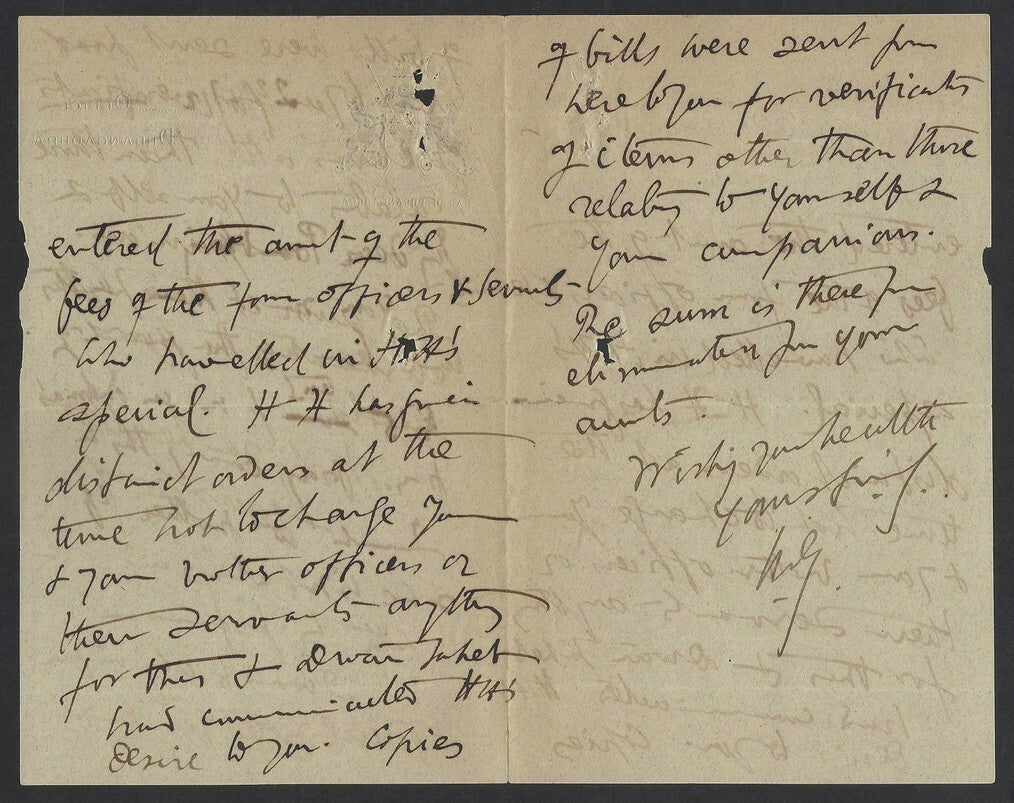 entered the amt of the
fees of the four officers & servants
who travelled in HH's
special. HH has given
distinct orders at the
time not to charge you
& your brother officers or
their servants anything
for this & Dewan Saheb
had communicated HH's
desire to you. Copies
of bills were sent from
here to you for verification
of items other than those
relating to yourself &
your companions.
The sum is therefore
eliminated from your
amts.
Wishing you health
Yours